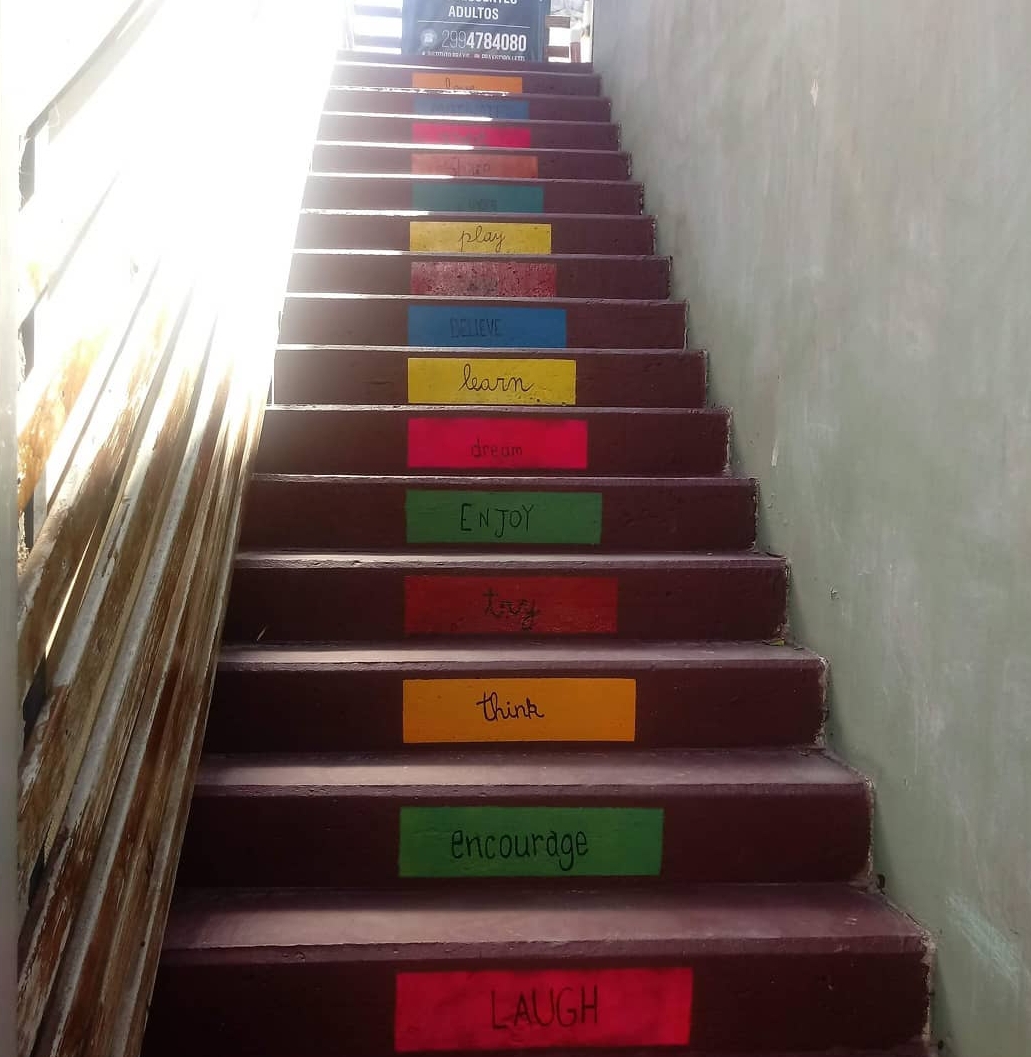 ADULTOS
2994784080
love
share
play
BELIEVE
learn
dream
ENJOY
try
think
encourage
LAUGH